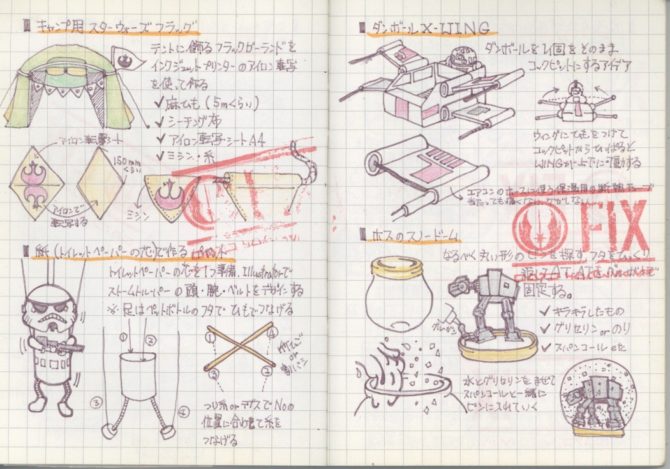 キャンプ用 スターウォーズ フラッグ
テントに飾るフラッグガーランドを
インクジェットプリンターのアイロン転写
を使って作る
✓ 麻ひも (5mくらい)
✓ シーチング布
✓ アイロン転写シート A4
✓ ミシン・糸
アイロン転写シート
150mm
くらい
アイロンで
転写する
ミシン
紙(トイレットペーパーの芯)で作る
トイレットペーパーの芯を1つ準備、Illustratorで
ストームトルーパーの頭・腕・ベルトをデザインする
※ 足はペットボトルのフタで ひもでつなげる
① ② ③ ④
③ ④
つり糸 or テグスで Noの
位置に合わせて糸を
つなげる
ダンボール X-WING
ダンボールを1個をそのまま
コックピットにするアイデア
ウィングにひもをつけて
コックピットからひっぱると
WINGが上下に可動する
エアコンのホースに使う保温用の断熱
FIX
ホスのスノードーム
なるべく丸い形のビンを探す、フタをひっくり
返してAT-ATを
固定する。
✓ キラキラしたもの
✓ グリセリン or のり
✓ スパンコール etc
水とグリセリンをまぜて
スパンコールと一緒に
ビンに入れていく